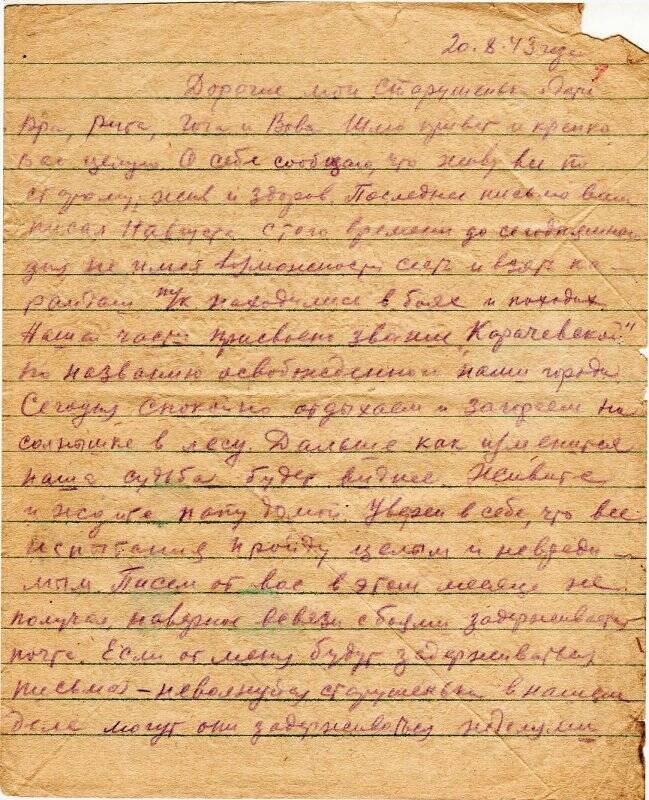 20.8.43 года
Дорогие мои старушенька Дора
Ира, Рита, Гога и Вова Шлю привет и крепко
вас целую. О себе сообщаю, что живу все по
старому, жив и здоров. Последнее письмо вам
писал 11 августа с того времени до сегодняшнего
дня не имел возможности сесть и взять ка-
рандаш т/к находились в боях и походах
Нашей части присвоено звание "Карачевской"
по названию освобожденного нами города
Сегодня спокойно отдыхаем и загораем на
солнышке в лесу. Дальше как изменится
наша судьба будет виднее. Живите
и ждите папу домой Уверен в себе, что все
испытания пройду целым и невреди-
мым. Писем от вас в этом месяце не
получал, наверное в связи с боями задерживается
почта. Если от меня будут задерживаться
письма - не волнуйся старушенька в нашем
деле могут они задерживаться неделями